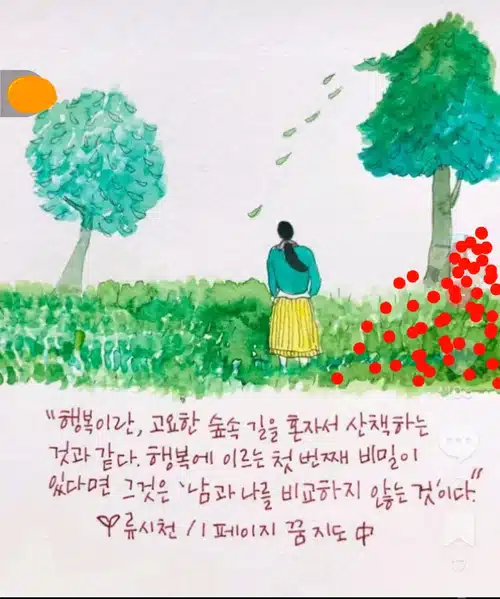 "행복이란, 고요한 숲속 길을 혼자서 산책하는
것과 같다. 행복에 이르는 첫 번째 비밀이
있다면 그것은 '남과 나를 비교하지 않는 것'이다"
류시천 / 1 페이지 꿈 지도 中